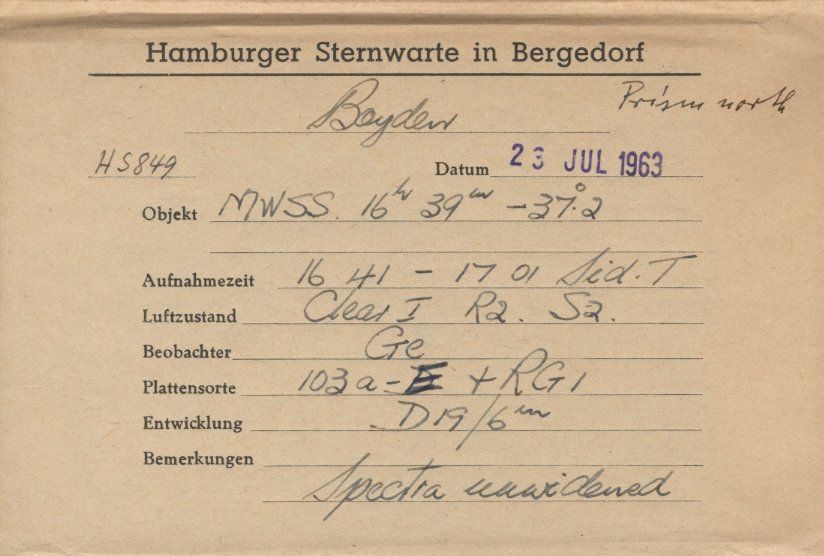 Hamburger Sternwarte in Bergedorf
Prism north
Boyden
HS849
Datum 23 JUL 1963
Objekt MWSS. 16h 39m -37°.2
Aufnahmezeit 16 41 - 17 01 Sid. T
Luftzustand Clear I R2. S2.
Beobachter Ge
Plattensorte 103a-E + RG1
Entwicklung D19/6m
Bemerkungen
Spectra unwidened